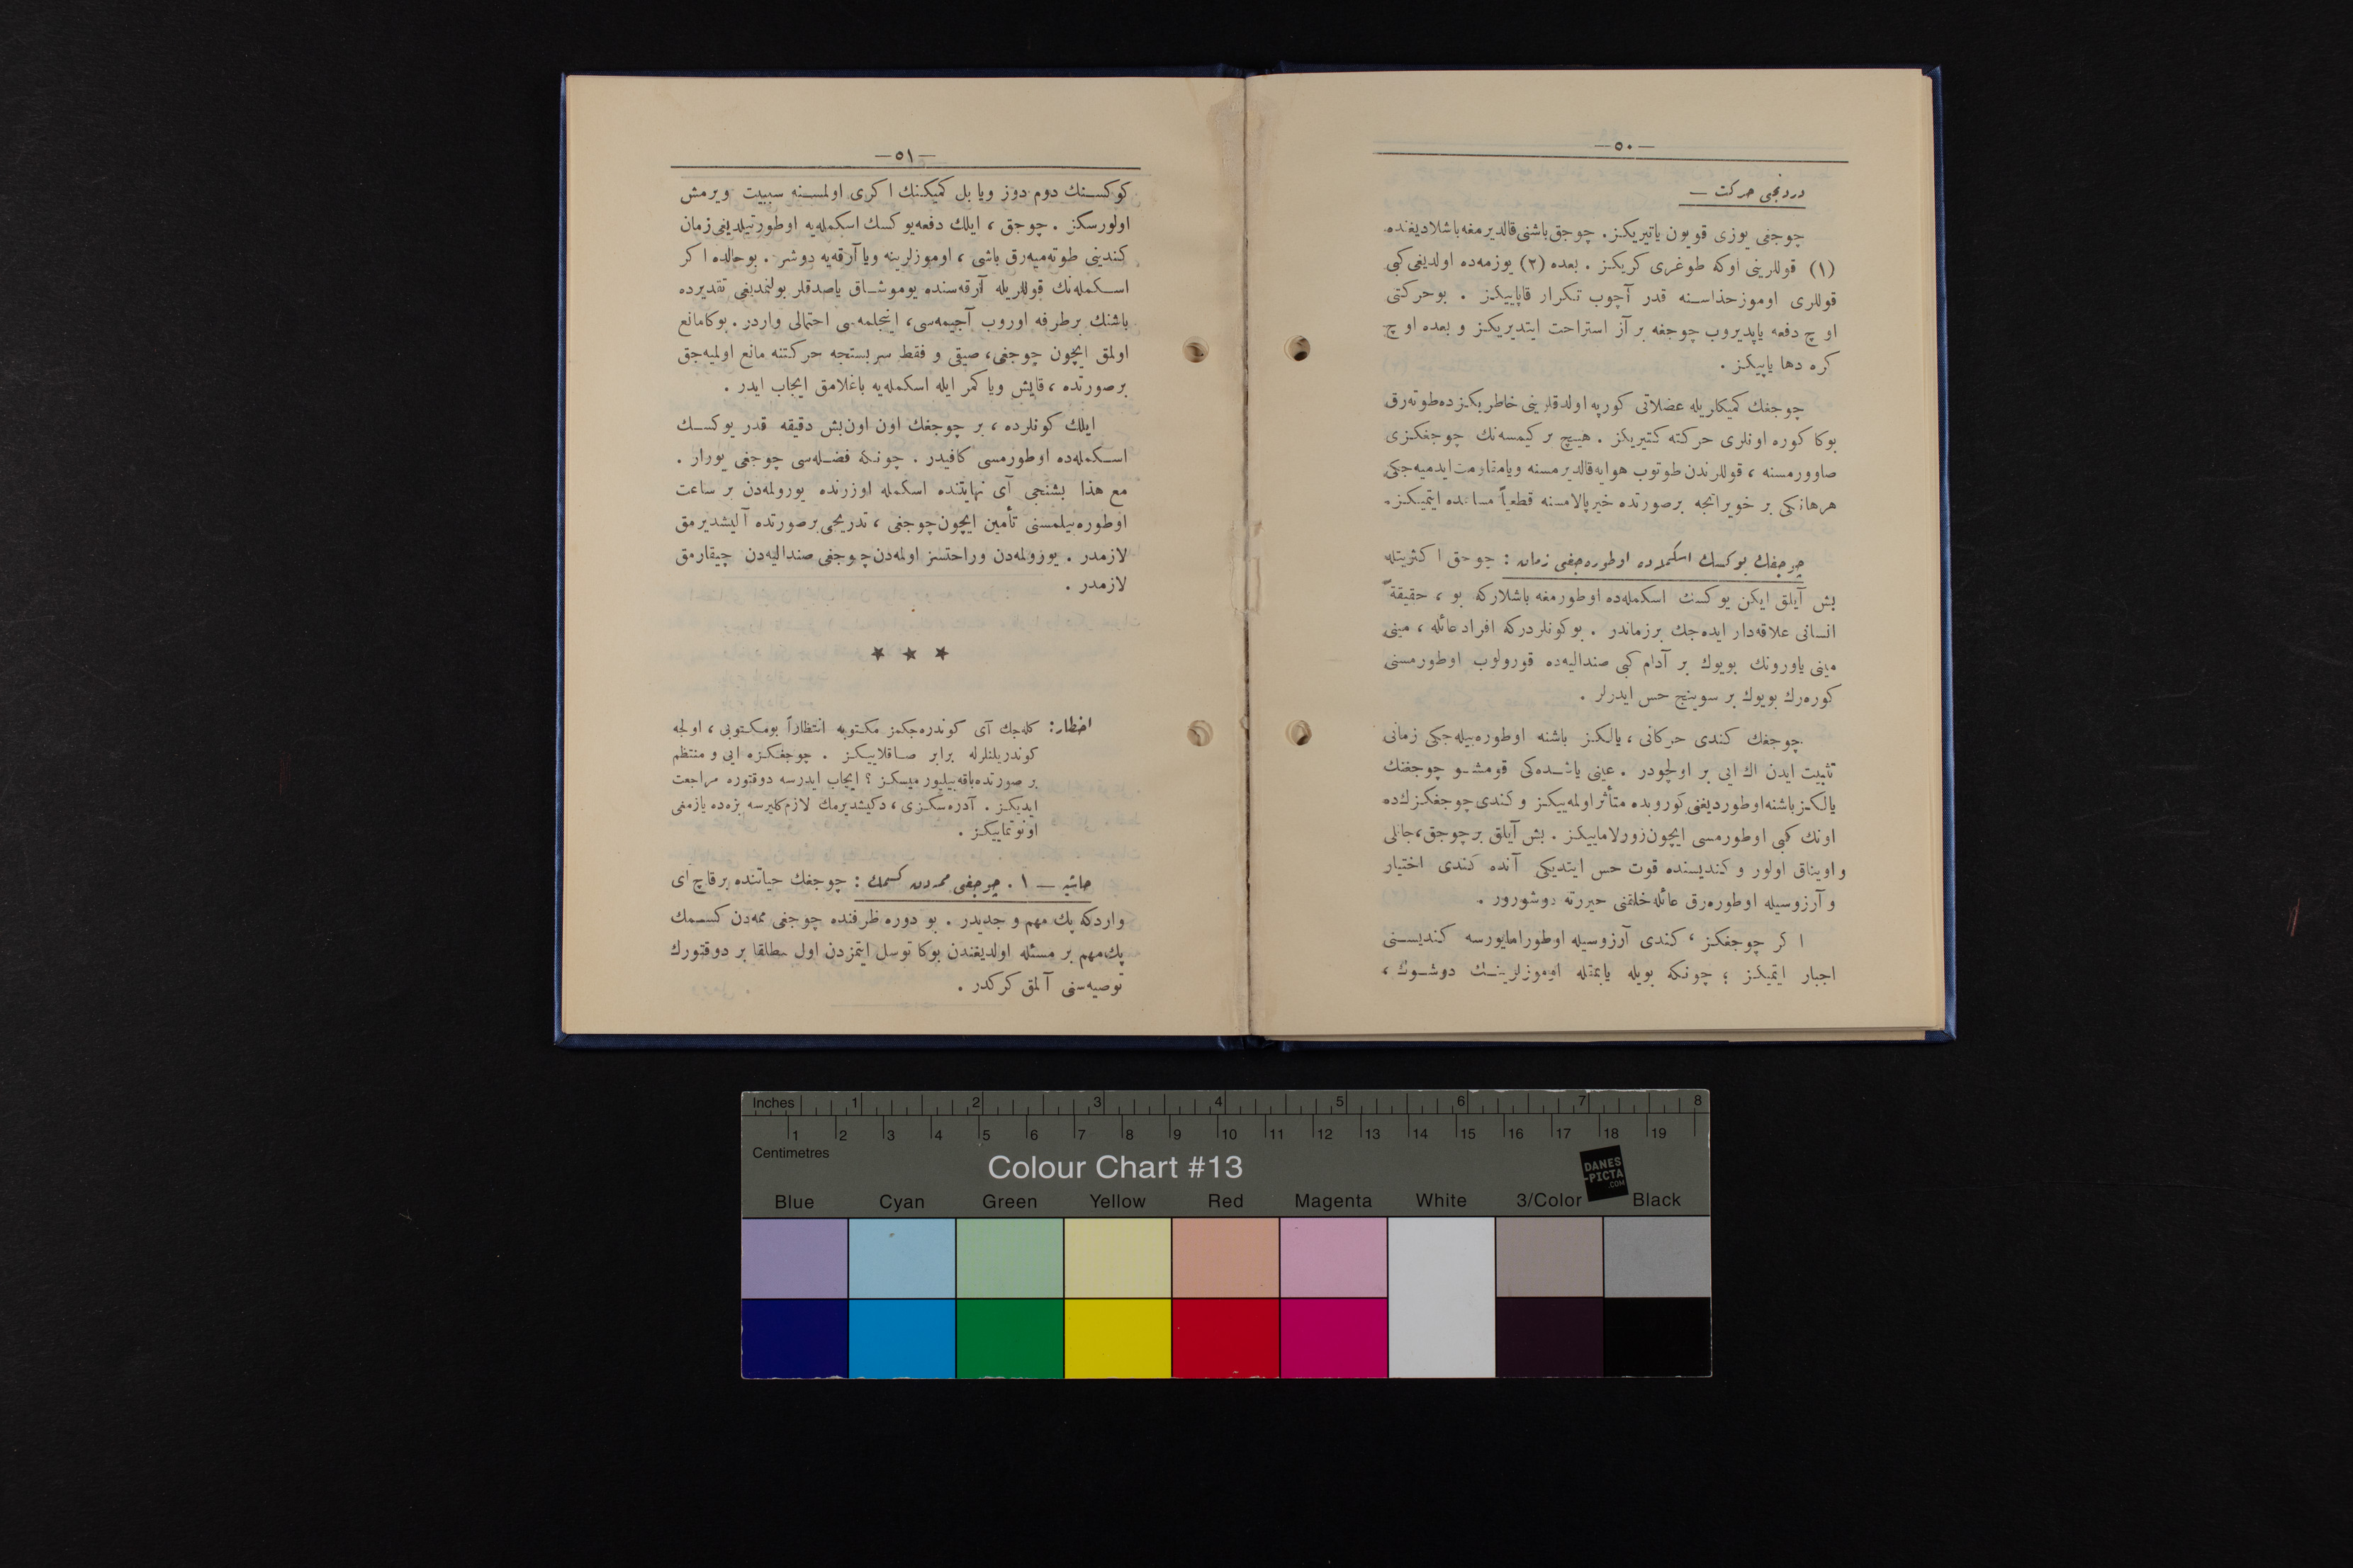 —٥٠—
دردنجى حركت —
چوجغى يوزى قويون ياتيريكز. چوجق باشنى قالديرمغه باشلاديغنده
(١) قوللرينى اوكه طوغرى كريكز . بعده (٢) يوزمه‌ده اولديغى كبى
قوللرى اوموز حذاسنه قدر آچوب تكرار قاپاييكز . بوحركتى
اوچ دفعه ياپديروب چوجغه بر آز استراحت ايتديريكز و بعده اوچ
كره دها ياپيكز .
چوجغك كميكلريله عضلاتى كورپه اولدقلرينى خاطريكزده طوته‌رق
بوكا كوره اونلرى حركته كتيريكز . هيچ بر كيمسه‌نك چوجغكزى
صاوورمسنه ، قوللرندن طوتوب هوايه قالديرمسنه ويا مقاومت ايدميه‌جكى
هرهانكى بر خويراتجه برصورتده خيرپالامسنه قطعياً مساعده ايتميكز.
چوجغك يوكسك اسكمله‌ده اوطوره‌جغى زمان : چوجق اكثريتله
بش آيلق ايكن يوكسك اسكمله‌ده اوطورمغه باشلاركه بو ، حقيقةً
انسانى علاقه‌دار ايده‌جك برزماندر . بوكونلردركه افراد عائله ، مينى
مينى ياورونك بويوك بر آدام كبى صنداليه‌ده قورولوب اوطورمسنى
كوره‌رك بويوك بر سوينج حس ايدرلر .
چوجغك كندى حركاتى ، يالكز باشنه اوطوره‌بيله‌جكى زمانى
تثبيت ايدن اك ايى بر اولچودر . عينى ياشده‌كى قومشو چوجغنك
يالكز باشنه اوطورديغنى كوروبده متأثر اولمه‌ييكز و كندى چوجغكزك‌ده
اونك كبى اوطورمسى ايچون زورلاماييكز . بش آيلق بر چوجق، جانلى
و اويناق اولور و كنديسنده قوت حس ايتديكى آنده كندى اختيار
و آرزوسيله اوطوره‌رق عائله خلقنى حيرته دوشورور .
اكر چوجغكز ، كندى آرزوسيله اوطوراماىورسه كنديسنى
اجبار ايتميكز ؛ چونكه بويله ياپمقله اوموزلرينك دوشوك ،
—٥١—
كوكسنك دوم دوز ويا بل كميكنك اكرى اولمسنه سببيت ويرمش
اولورسكز . چوجق ، ايلك دفعه يوكسك اسكمله‌يه اوطورتيلديغى زمان
كندينى طوته‌ميه‌رق باشى ، اوموزلرينه ويا آرقه‌يه دوشر . بوحالده اكر
اسكمله‌نك قوللريله آرقه‌سنده يوموشاق ياصدقلر بولنمديغى تقديرده
باشنك برطرفه اوروب آجيمه‌سى، اينجلمه‌سى احتمالى واردر . بوكامانع
اولمق ايچون چوجغى، صيقى و فقط سربستجه حركتنه مانع اولميه‌جق
برصورتده ، قايش ويا كمر ايله اسكمله‌يه باغلامق ايجاب ايدر .
ايلك كونلرده ، بر چوجغك اون اون‌بش دقيقه قدر يوكسك
اسكمله‌ده اوطورمسى كافيدر . چونكه فضله‌سى چوجغى يورار .
مع هذا بشنجى آى نهايتنده اسكمله اوزرنده يورولمه‌دن بر ساعت
اوطوره‌بيلمسنى تأمين ايچون چوجغى ، تدريجى برصورتده آليشديرمق
لازمدر . يورولمه‌دن وراحتسز اولمه‌دن چوجغى صنداليه‌دن چيقارمق
لازمدر .
★ ★ ★
اخطار: كله‌جك آى كوندره‌جكمز مكتوبه انتظاراً بومكتوبى ، اولجه
كوندريلنلرله برابر صاقلاييكز . چوجغكزه ايى و منتظم
بر صورتده باقه‌بيليورميسكز ؟ ايجاب ايدرسه دوقتوره مراجعت
ايديكز . آدره‌سكزى ، دكيشديرمك لازم كليرسه بزه‌ده يازمغى
اونوتماييكز .
حاشيه — ١ . چوجغى ممه‌دن كسمك : چوجغك حياتنده برقاچ آى
واردكه پك مهم و جديدر . بو دوره ظرفنده چوجغى ممه‌دن كسمك
پك مهم بر مسئله اولديغندن بوكا توسل ايتمزدن اول مطلقا بر دوقتورك
توصيه‌سنى آلمق كركدر .
Inches 1 2 3 4 5 6 7 8
1 2 3 4 5 6 7 8 9 10 11 12 13 14 15 16 17 18 19
Centimetres
Colour Chart #13
DANES
-PICTA
.COM
Blue Cyan Green Yellow Red Magenta White 3/Color Black